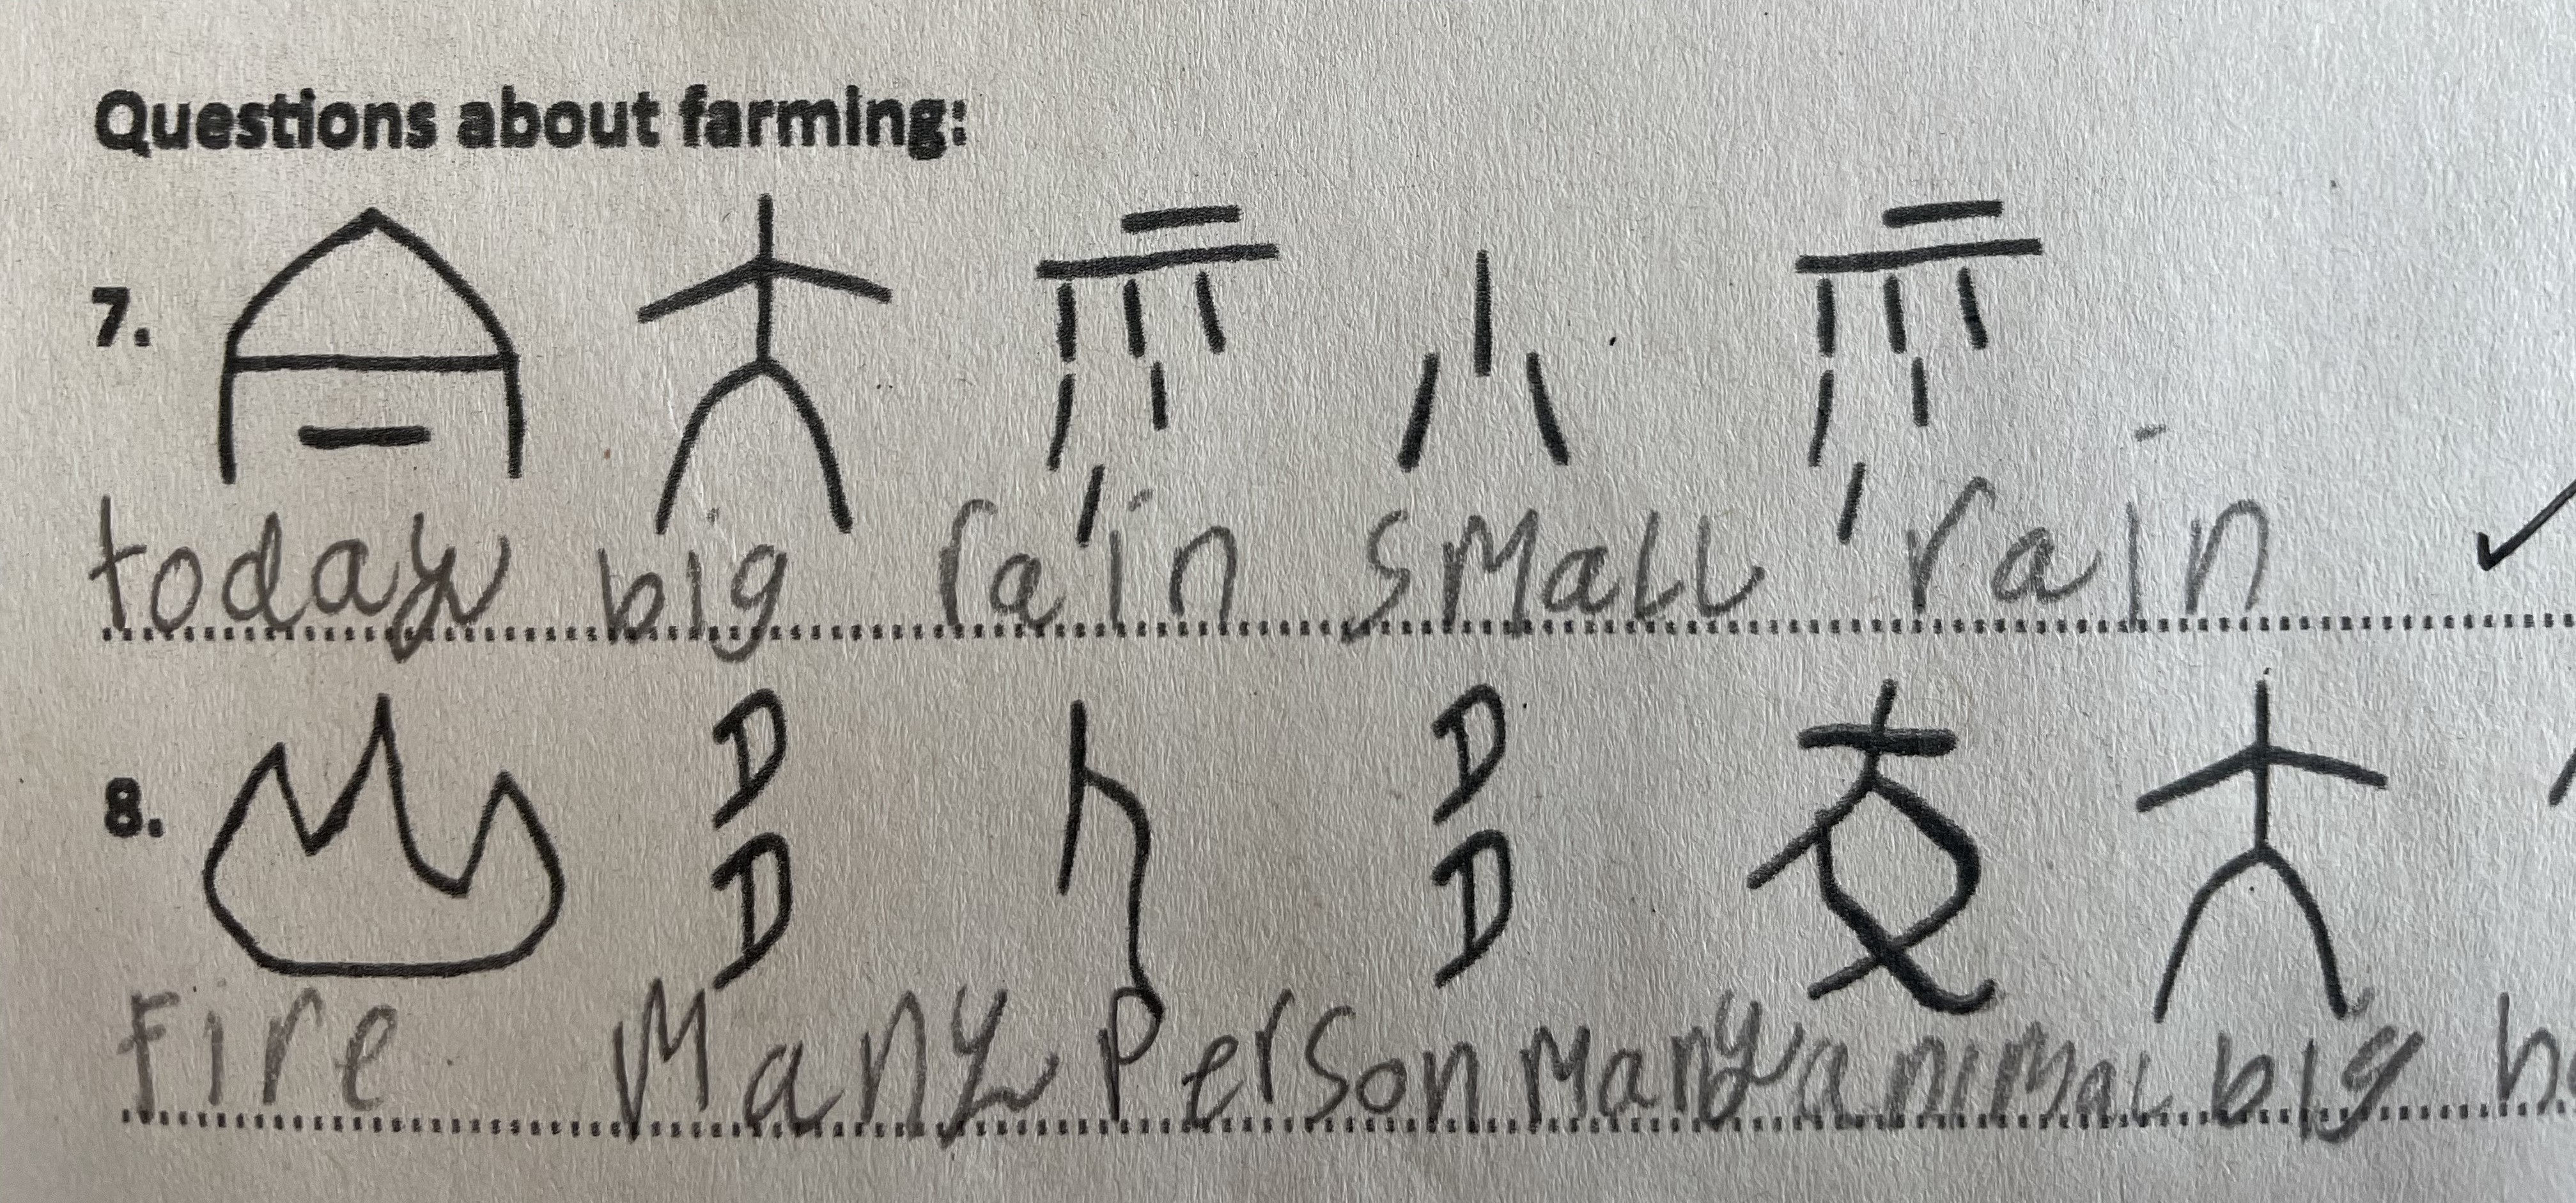 Questions about farming:
7. 今 大 雨 小 雨
today big rain small rain
8. 火 多 人 多
Fire Many Person Many animal big